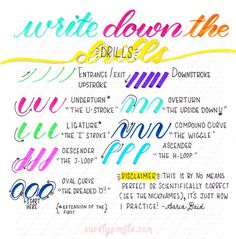 write down the
DRILLS
ENTRANCE/EXIT UPSTROKE
DOWNSTROKE
UNDERTURN*
"THE U-STROKE"
OVERTURN
"THE UPSIDE DOWN U"
LIGATURE*
"THE 'I' STROKE"
COMPOUND CURVE
"THE WIGGLE"
DESCENDER
"THE J-LOOP"
ASCENDER
"THE H-LOOP"
OVAL CURVE
"THE DREADED O"
START HERE
*EXTENSION OF THE FIRST
DISCLAIMER: THIS IS BY NO MEANS
PERFECT OR SCIENTIFICALLY CORRECT
(SEE THE NICKNAMES), IT'S JUST HOW
I PRACTICE!
surelysimple.com